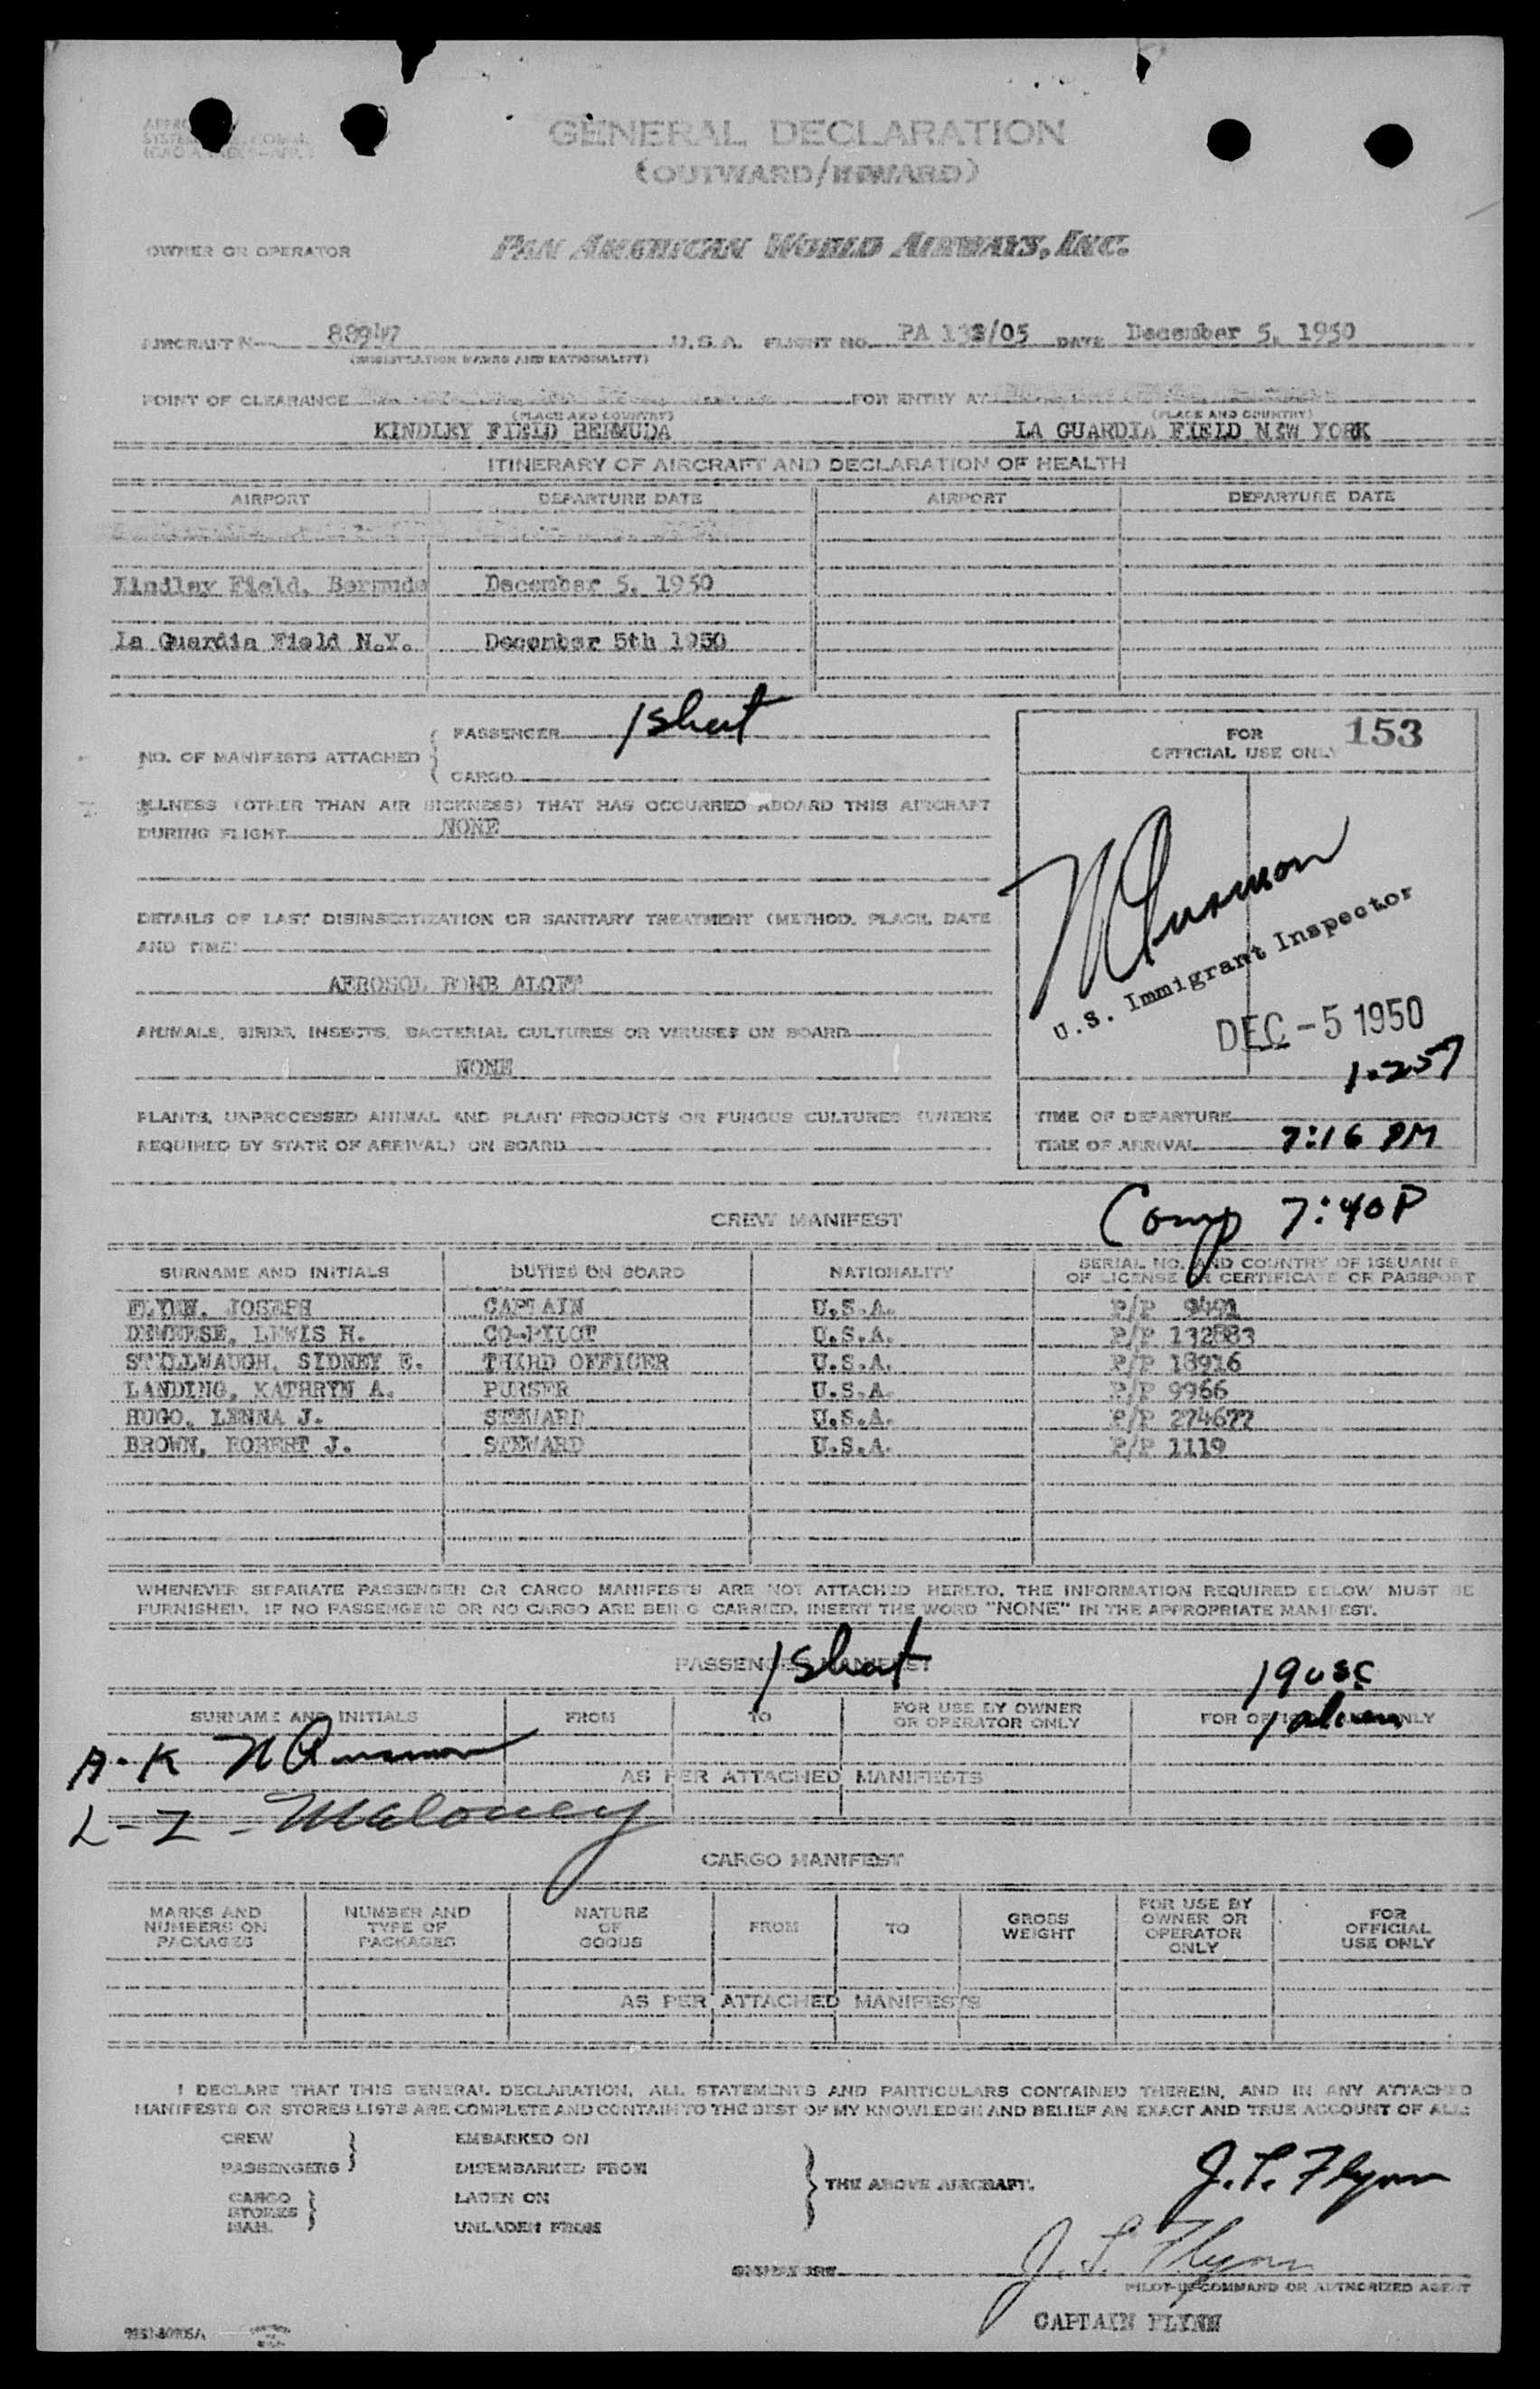 GENERAL DECLARATION
(OUTWARD/INWARD)
OWNER OR OPERATOR PAN AMERICAN WORLD AIRWAYS, INC.
AIRCRAFT N- 88947 U.S.A. FLIGHT NO. PA 138/05 DATE December 5, 1950
(REGISTRATION MARKS AND NATIONALITY)
POINT OF CLEARANCE FOR ENTRY AT
(PLACE AND COUNTRY) (PLACE AND COUNTRY)
KINDLEY FIELD BERMUDA LA GUARDIA FIELD NEW YORK
ITINERARY OF AIRCRAFT AND DECLARATION OF HEALTH
AIRPORT DEPARTURE DATE AIRPORT DEPARTURE DATE
Kindley Field, Bermuda December 5, 1950
La Guardia Field N.Y. December 5th 1950
NO. OF MANIFESTS ATTACHED { PASSENGER 1 sheet
CARGO
FOR OFFICIAL USE ONLY 153
ILLNESS (OTHER THAN AIR SICKNESS) THAT HAS OCCURRED ABOARD THIS AIRCRAFT
DURING FLIGHT NONE
DETAILS OF LAST DISINSECTIZATION OR SANITARY TREATMENT (METHOD, PLACE, DATE
AND TIME)
AEROSOL BOMB ALOFT
ANIMALS, BIRDS, INSECTS, BACTERIAL CULTURES OR VIRUSES ON BOARD
NONE
PLANTS, UNPROCESSED ANIMAL AND PLANT PRODUCTS OR FUNGUS CULTURES (WHERE
REQUIRED BY STATE OF ARRIVAL) ON BOARD
U.S. Immigrant Inspector
DEC -5 1950
1-257
TIME OF DEPARTURE
TIME OF ARRIVAL 7:16 PM
Comp 7:40P
CREW MANIFEST
SURNAME AND INITIALS DUTIES ON BOARD NATIONALITY SERIAL NO. AND COUNTRY OF ISSUANCE
OF LICENSE OR CERTIFICATE OR PASSPORT
FLYNN, JOSEPH CAPTAIN U.S.A. P/P 9491
DEWEESE, LEWIS H. CO-PILOT U.S.A. P/P 132883
STILLWAUGH, SIDNEY E. THIRD OFFICER U.S.A. P/P 18916
LANDING, KATHRYN A. PURSER U.S.A. P/P 9966
HUGO, LENNA J. STEWARD U.S.A. P/P 274677
BROWN, ROBERT J. STEWARD U.S.A. P/P 1119
WHENEVER SEPARATE PASSENGER OR CARGO MANIFESTS ARE NOT ATTACHED HERETO, THE INFORMATION REQUIRED BELOW MUST BE
FURNISHED. IF NO PASSENGERS OR NO CARGO ARE BEING CARRIED, INSERT THE WORD "NONE" IN THE APPROPRIATE MANIFEST.
PASSENGER MANIFEST
1 sheet
19 usc
1 alien
SURNAME AND INITIALS FROM TO FOR USE BY OWNER
OR OPERATOR ONLY FOR OFFICIAL USE ONLY
A-K
AS PER ATTACHED MANIFESTS
L-Z - Maloney
CARGO MANIFEST
MARKS AND
NUMBERS ON
PACKAGES
NUMBER AND
TYPE OF
PACKAGES
NATURE
OF
GOODS
FROM
TO
GROSS
WEIGHT
FOR USE BY
OWNER OR
OPERATOR
ONLY
FOR
OFFICIAL
USE ONLY
AS PER ATTACHED MANIFESTS
I DECLARE THAT THIS GENERAL DECLARATION, ALL STATEMENTS AND PARTICULARS CONTAINED THEREIN, AND IN ANY ATTACHED
MANIFESTS OR STORES LISTS ARE COMPLETE AND CONTAIN TO THE BEST OF MY KNOWLEDGE AND BELIEF AN EXACT AND TRUE ACCOUNT OF ALL:
CREW EMBARKED ON
PASSENGERS DISEMBARKED FROM
THE ABOVE AIRCRAFT.
CARGO LADEN ON
STORES
MAIL UNLADEN FROM
J. L. Flynn
SIGNATURE J. L. Flynn
PILOT-IN-COMMAND OR AUTHORIZED AGENT
CAPTAIN FLYNN